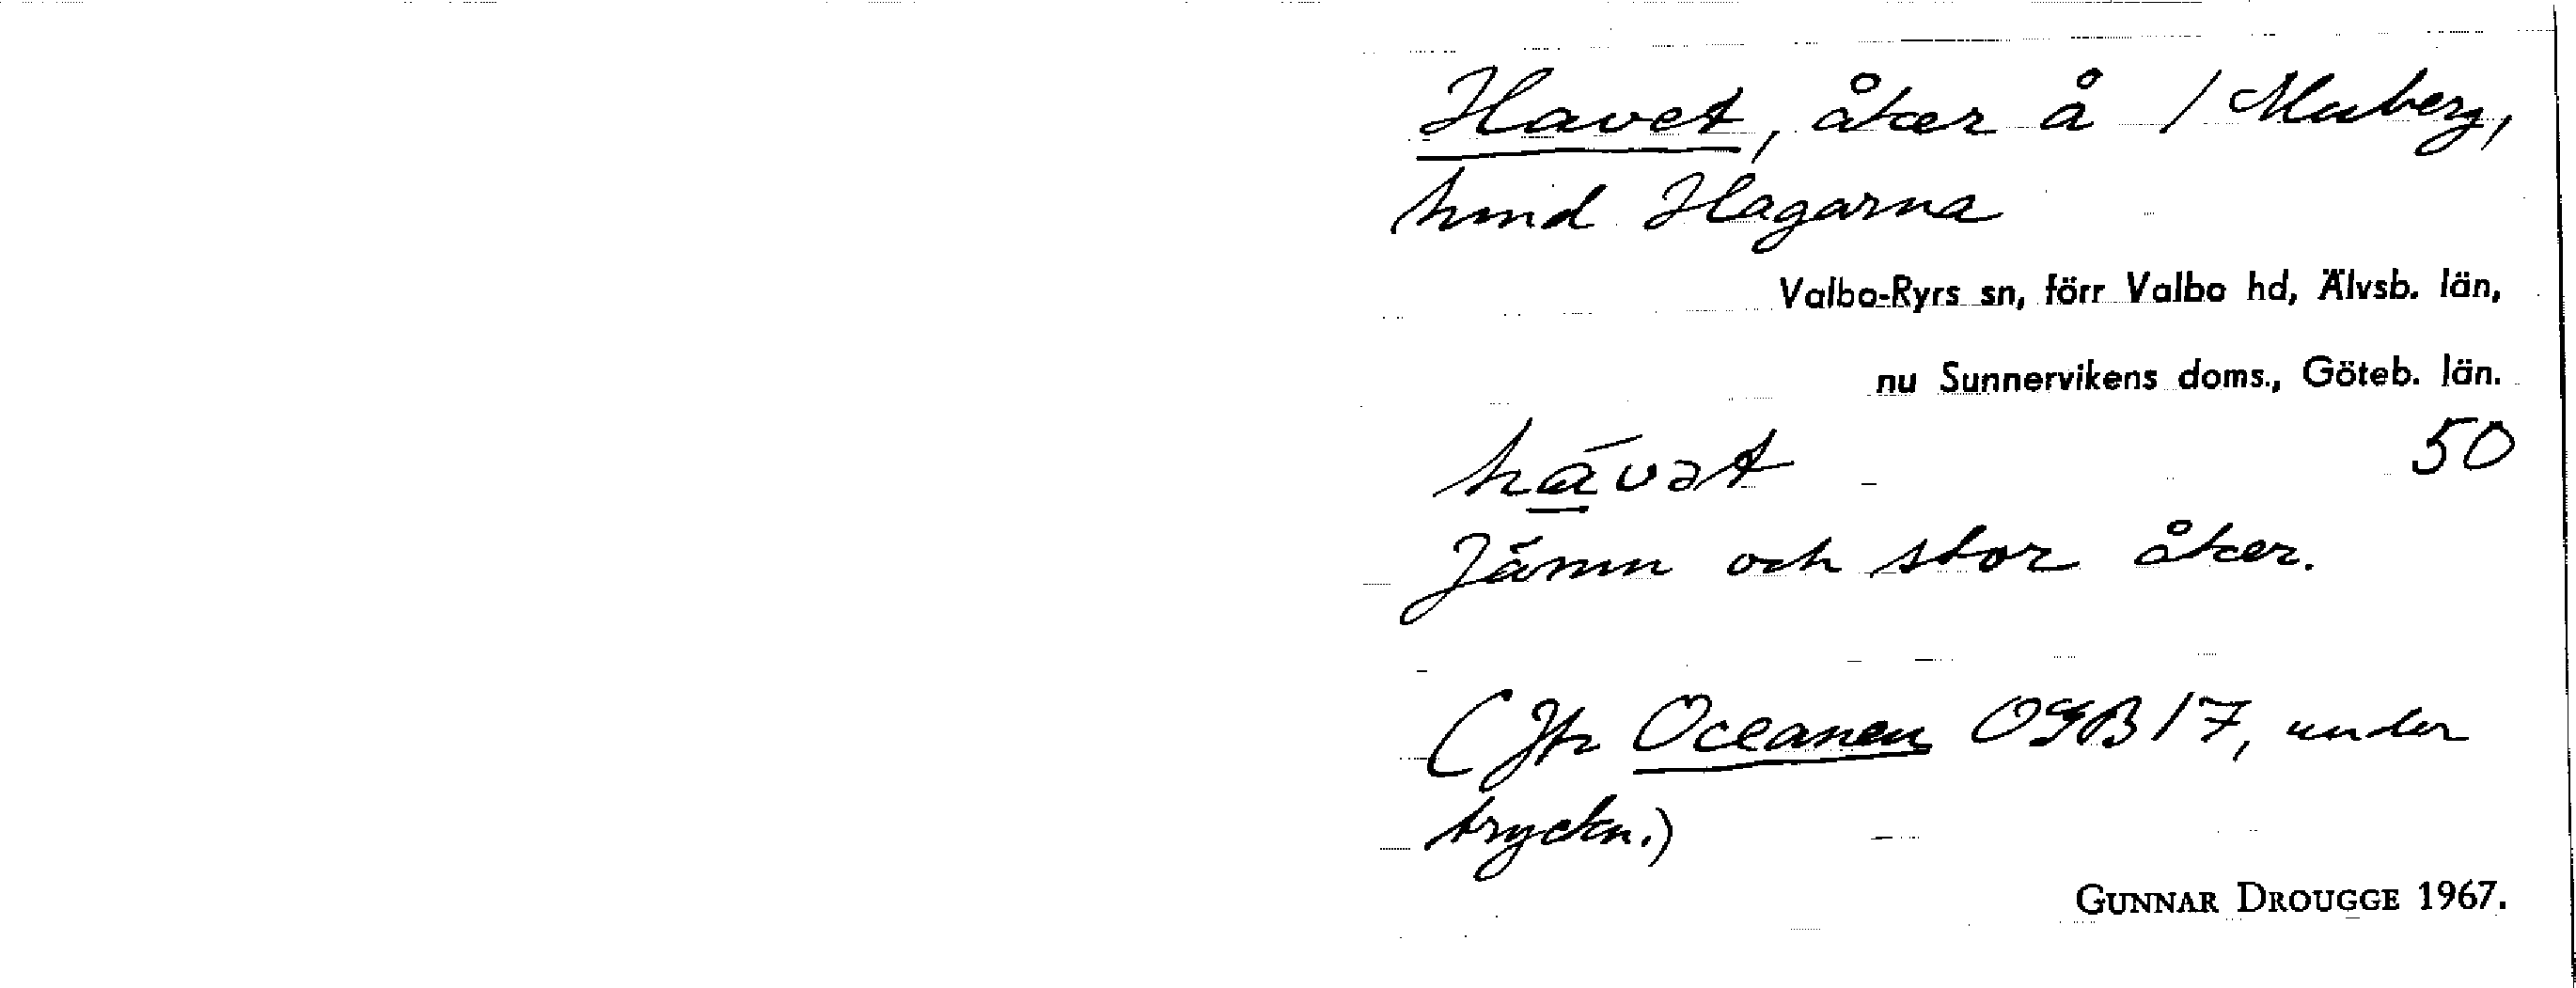 Havet, åker å 1 Muberg,
hmd Hagarna
Valbo-Ryrs sn, förr Valbo hd, Älvsb. län,
nu Sunnervikens doms., Göteb. län.
hāvət 50
Jämn och stor åker.
(Jfr Oceanen OGB 17, under
tryckn.)
GUNNAR DROUGGE 1967.